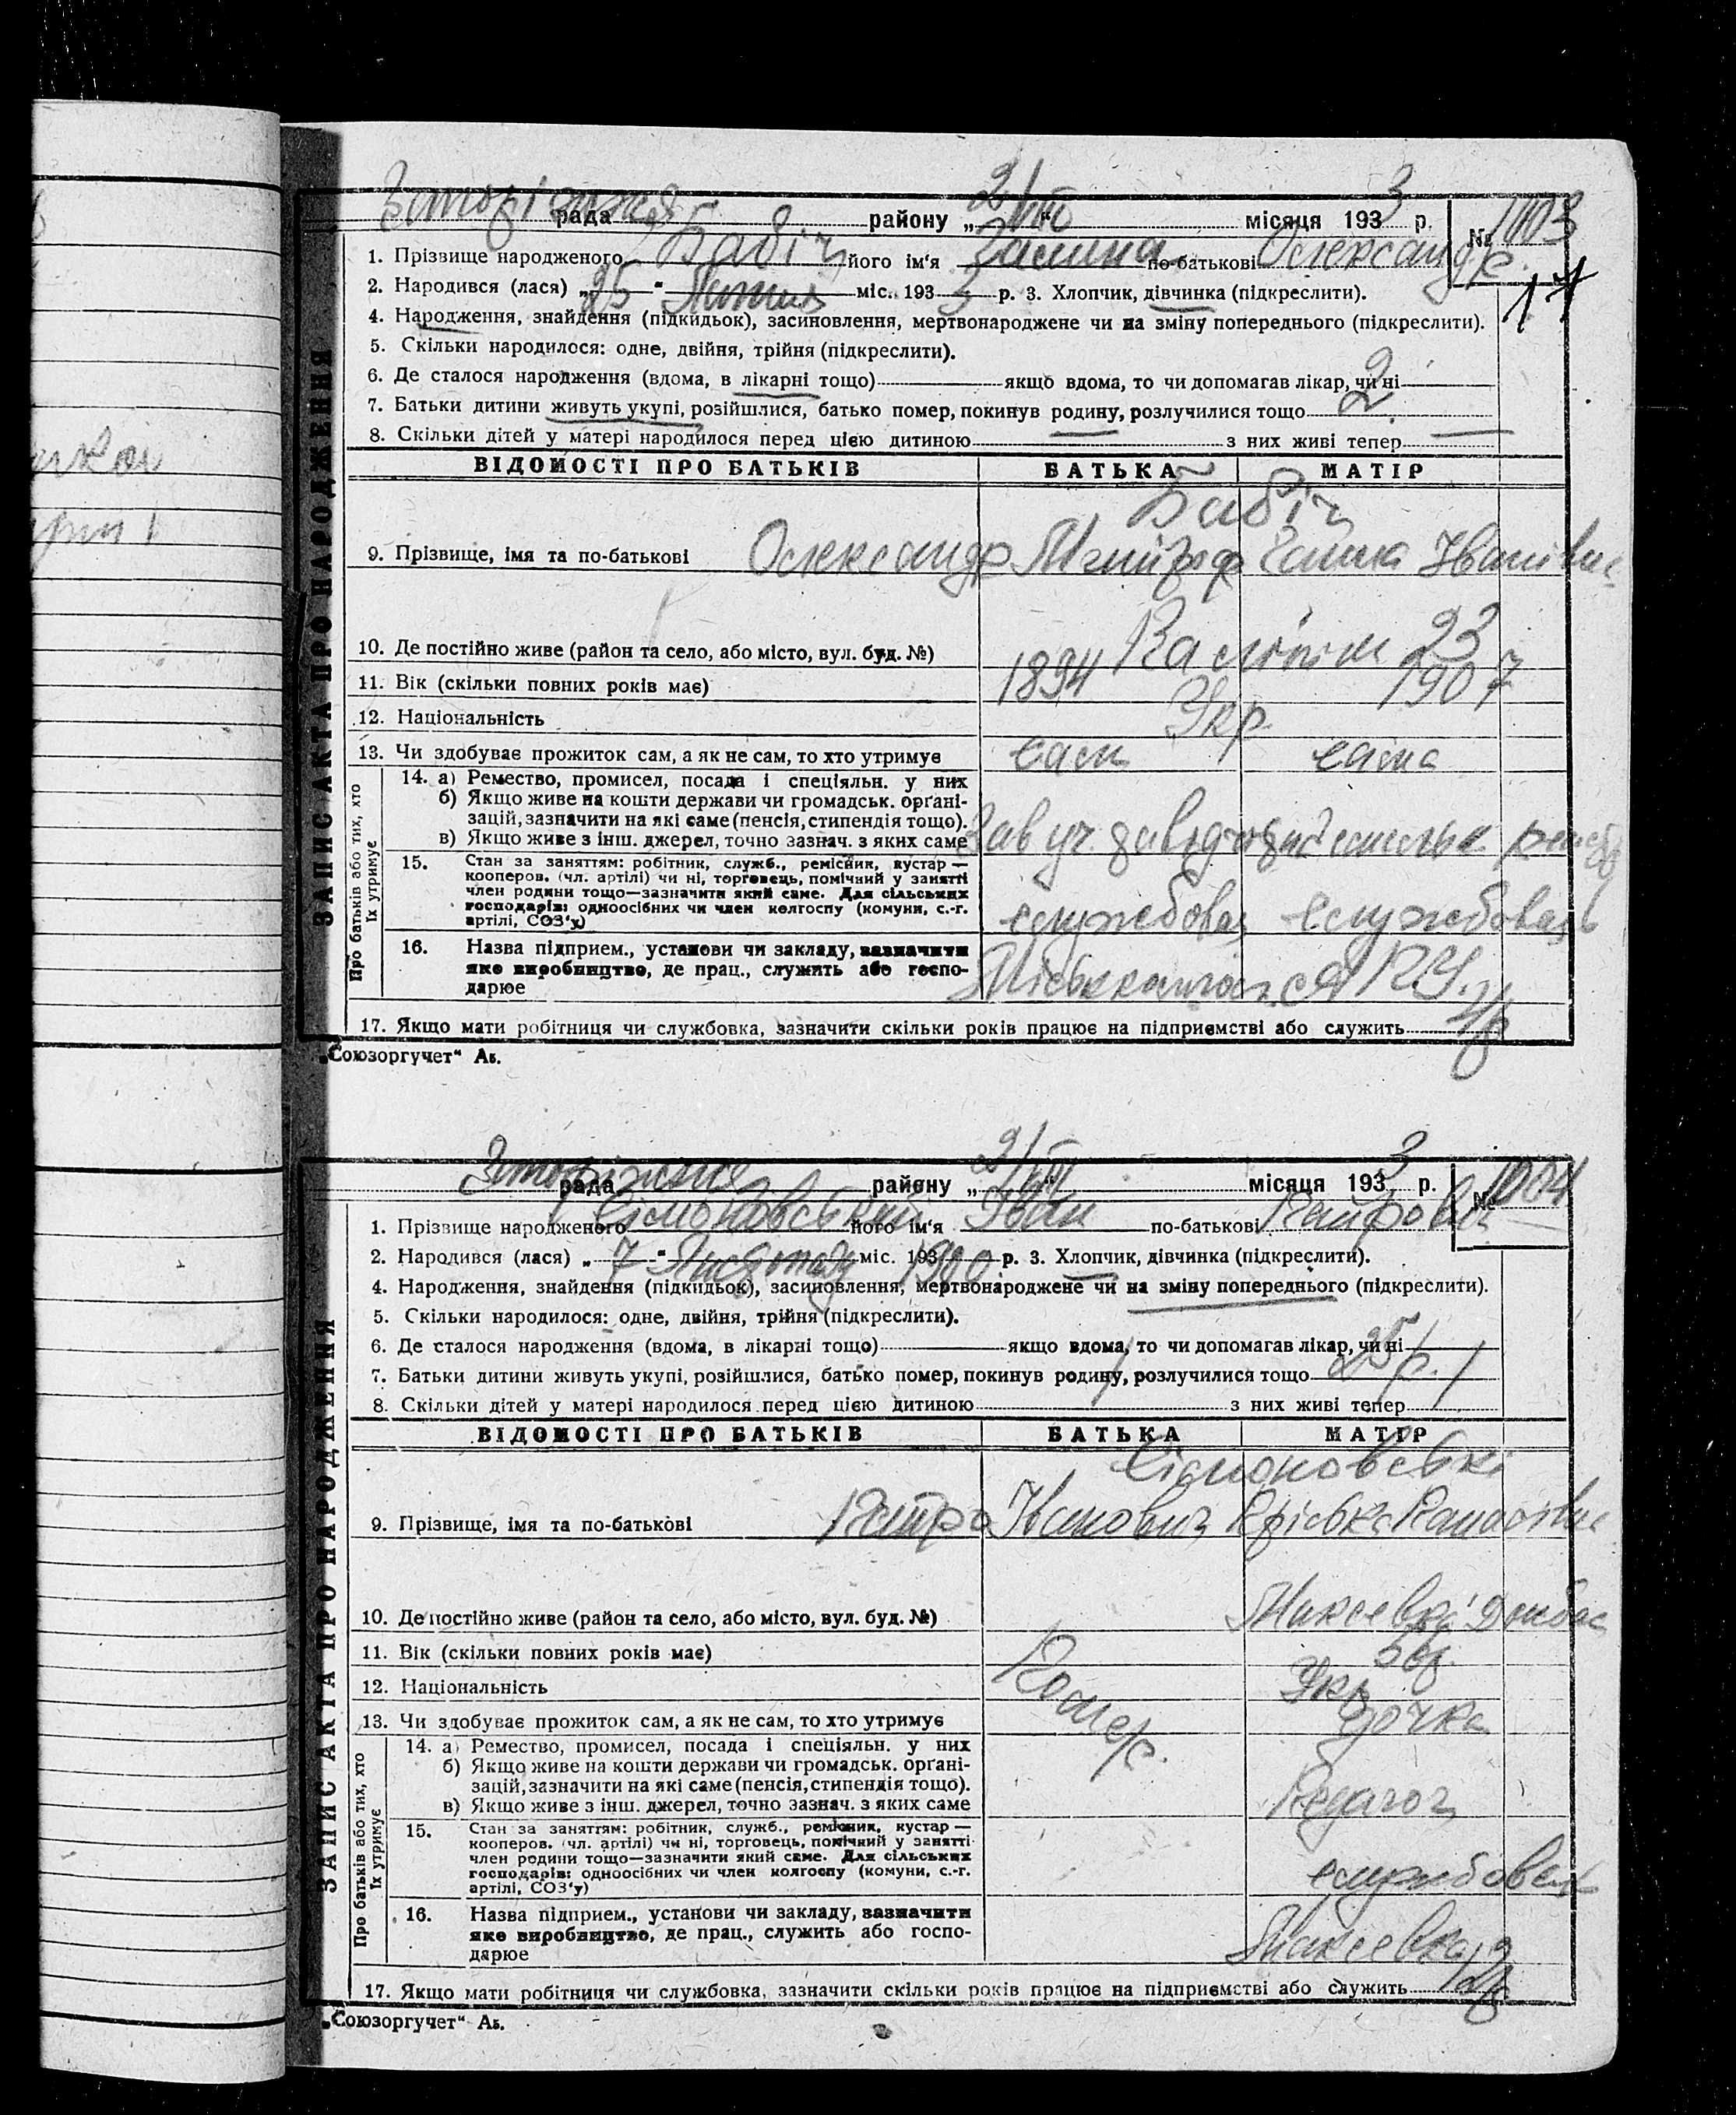 Запоріжжя рада району „ 2/III “ місяця 1933 р. № 1003
1. Прізвище народженого Бабіч його ім'я Галина по-батькові Олександр.
17
2. Народився (лася) „ 25 “ міс. 1933 р. 3. Хлопчик, дівчинка (підкреслити).
4. Народження, знайдення (підкидьок), засиновлення, мертвонароджене чи на зміну попереднього (підкреслити).
5. Скільки народилося: одне, двійня, трійня (підкреслити).
6. Де сталося народження (вдома, в лікарні тощо) якщо вдома, то чи допомагав лікар, чи ні
7. Батьки дитини живуть укупі, розійшлися, батько помер, покинув родину, розлучилися тощо 2
8. Скільки дітей у матері народилося перед цією дитиною — з них живі тепер —
ВІДОМОСТІ ПРО БАТЬКІВ БАТЬКА МАТІР
Бабіч
9. Прізвище, імя та по-батькові Олександр Івановна
10. Де постійно живе (район та село, або місто, вул. буд. №) 23
11. Вік (скільки повних років має) 1894 1907
12. Національність Укр.
13. Чи здобуває прожиток сам, а як не сам, то хто утримує сам сама
14. а) Ремество, промисел, посада і спеціяльн. у них
б) Якщо живе на кошти держави чи громадськ. орґані-
зацій, зазначити на які саме (пенсія, стипендія тощо).
в) Якщо живе з інш. джерел, точно зазнач. з яких саме Зав уч.
15. Стан за заняттям: робітник, служб., ремісник, кустар —
кооперов. (чл. артілі) чи ні, торговець, помічний у занятті
член родини тощо—зазначити який саме. Для сільських
господарів: одноосібних чи член колгоспу (комуни, с.-г.
артілі, СОЗ'у) службовец службовець
16. Назва підприєм., установи чи закладу, зазначити
яке виробництво, де прац., служить або госпо-
дарює
17. Якщо мати робітниця чи службовка, зазначити скільки років працює на підприємстві або служить
Про батьків або тих, хто їх утримує
ЗАПИС АКТА ПРО НАРОДЖЕННЯ
„Союзоргучет“ Аб.
Запоріжжя рада району „ 2/III “ місяця 1933 р. № 1004
1. Прізвище народженого Сімоновський його ім'я Іван по-батькові Петрович
2. Народився (лася) „ 7 “ Листопаду міс. 193 1900 р. 3. Хлопчик, дівчинка (підкреслити).
4. Народження, знайдення (підкидьок), засиновлення, мертвонароджене чи на зміну попереднього (підкреслити).
5. Скільки народилося: одне, двійня, трійня (підкреслити).
6. Де сталося народження (вдома, в лікарні тощо) якщо вдома, то чи допомагав лікар, чи ні
7. Батьки дитини живуть укупі, розійшлися, батько помер, покинув родину, розлучилися тощо 25 р.
8. Скільки дітей у матері народилося перед цією дитиною / з них живі тепер /
ВІДОМОСТІ ПРО БАТЬКІВ БАТЬКА МАТІР
Сімоновські
9. Прізвище, імя та по-батькові Петро Іванович
10. Де постійно живе (район та село, або місто, вул. буд. №) Макеевка Донбас
11. Вік (скільки повних років має)
Помер.
12. Національність Укр
13. Чи здобуває прожиток сам, а як не сам, то хто утримує дочка
14. а) Ремество, промисел, посада і спеціяльн. у них
б) Якщо живе на кошти держави чи громадськ. орґані-
зацій, зазначити на які саме (пенсія, стипендія тощо).
в) Якщо живе з інш. джерел, точно зазнач. з яких саме Педагог
15. Стан за заняттям: робітник, служб., ремісник, кустар —
кооперов. (чл. артілі) чи ні, торговець, помічний у занятті
член родини тощо—зазначити який саме. Для сільських
господарів: одноосібних чи член колгоспу (комуни, с.-г.
артілі, СОЗ'у) службовець
16. Назва підприєм., установи чи закладу, зазначити
яке виробництво, де прац., служить або госпо-
дарює Макеевка
17. Якщо мати робітниця чи службовка, зазначити скільки років працює на підприємстві або служить
Про батьків або тих, хто їх утримує
ЗАПИС АКТА ПРО НАРОДЖЕННЯ
„Союзоргучет“ Аб.